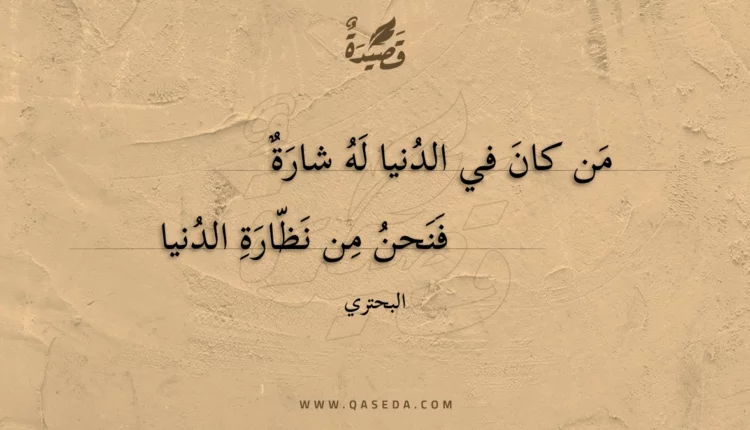 قَصِيدَةٌ
مَن كانَ في الدُنيا لَهُ شارَةٌ
فَنَحنُ مِن نَظّارَةِ الدُنيا
البحتري
WWW.QASEDA.COM